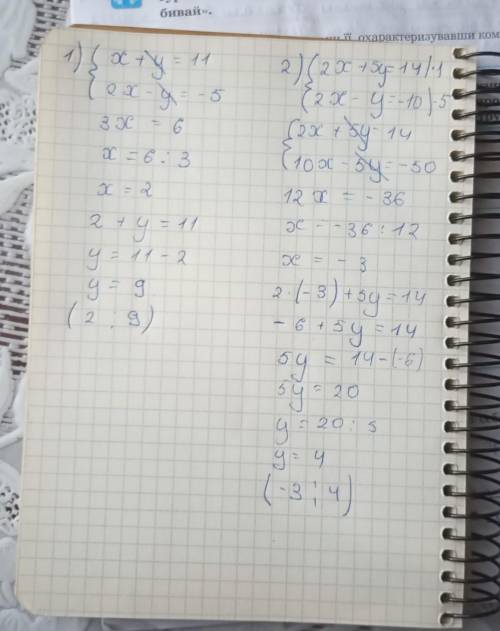 бивай».
й, охарактеризувавши ком
1) { x + y = 11
2x - y = -5
3x = 6
x = 6 : 3
x = 2
2 + y = 11
y = 11 - 2
y = 9
(2 ; 9)
2) { 2x + 5y = 14 | · 1
2x - y = -10 | · 5
{ 2x + 5y = 14
10x - 5y = -50
12x = -36
x = -36 : 12
x = -3
2 · (-3) + 5y = 14
-6 + 5y = 14
5y = 14 - (-6)
5y = 20
y = 20 : 5
y = 4
(-3 ; 4)